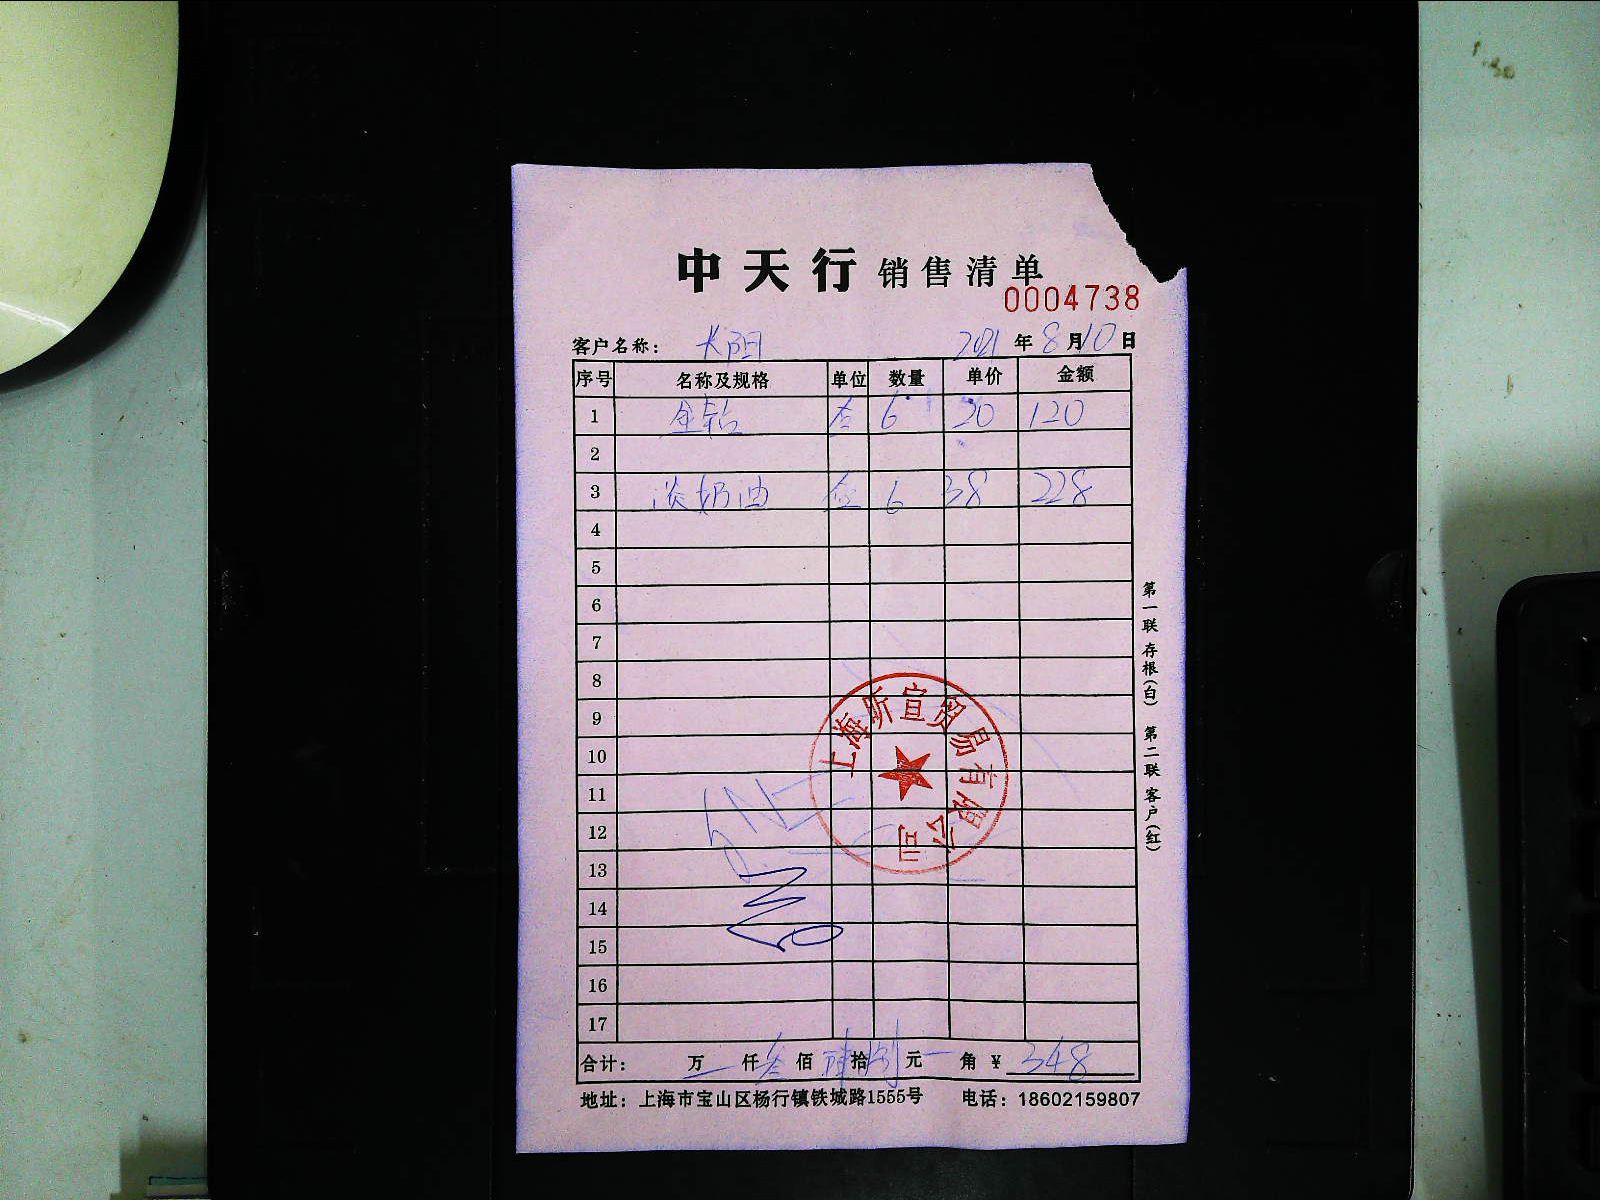 中天行 销售清单
0004738
客户名称： 长阳 2021 年 8 月 10 日
序号 名称及规格 单位 数量 单价 金额
1 金钻 6 20 120
2
3 淡奶油 6 38 228
4
5
6
7
8
9
10
11
12
13
14
15
16
17
上海昕宣贸易有限公司
合计： 万 仟 叁 佰 拾 捌 元 角 ¥ 348
地址：上海市宝山区杨行镇铁城路1555号 电话：18602159807
第一联 存根(白) 第二联 客户(红)